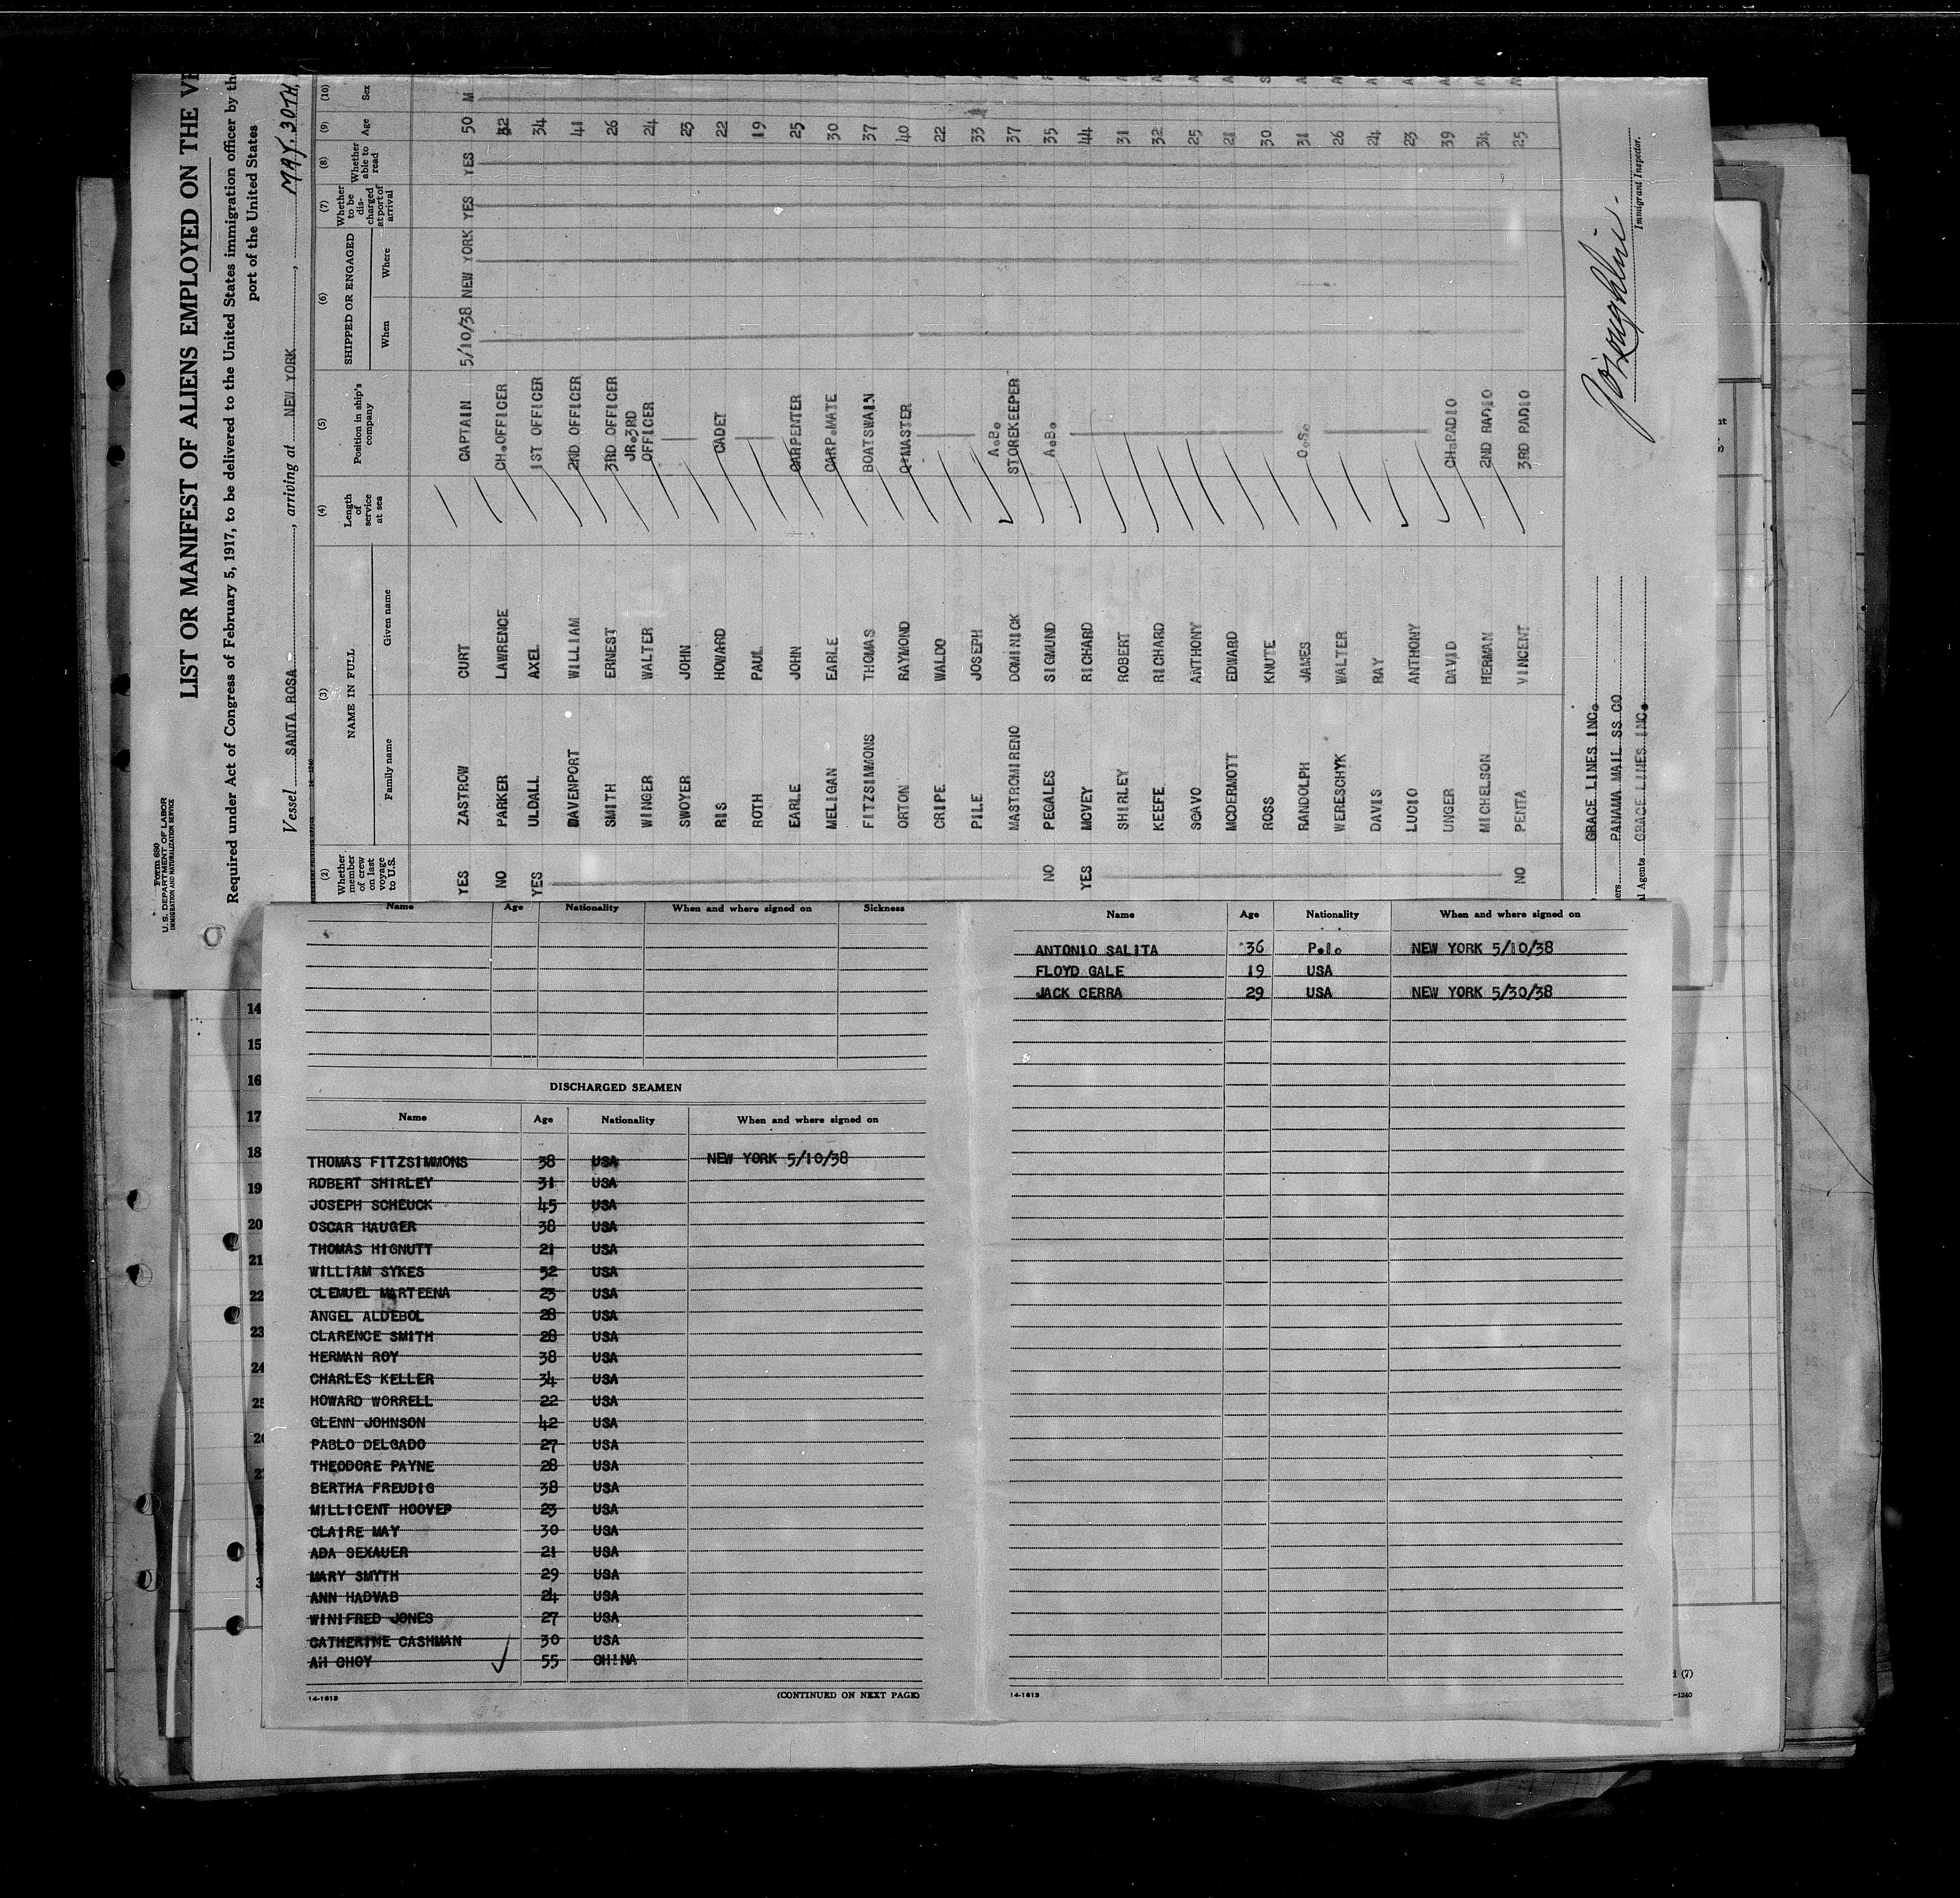 Form 680
U.S. DEPARTMENT OF LABOR
IMMIGRATION AND NATURALIZATION SERVICE
LIST OR MANIFEST OF ALIENS EMPLOYED ON THE
Required under Act of Congress of February 5, 1917, to be delivered to the United States immigration officer by the
port of the United States
Vessel SANTA ROSA, arriving at NEW YORK, MAY. 30TH,
(2) (3) (4) (5) (6) (7) (8) (9) (10)
Whether member of crew on last voyage to U.S. NAME IN FULL Length of service at sea Position in ship's company SHIPPED OR ENGAGED Whether to be discharged at port of arrival Whether able to read Age Sex
Family name Given name When Where
YES ZASTROW CURT CAPTAIN 5/10/38 NEW YORK YES YES 50 M
NO PARKER LAWRENCE CH.OFFICER 32
YES ULDALL AXEL 1ST OFFICER 34
DAVENPORT WILLIAM 2ND OFFICER 41
SMITH ERNEST 3RD OFFICER 26
WINGER WALTER JR.3RD OFFICER 24
SWOYER JOHN 23
RIS HOWARD CADET 22
ROTH PAUL 19
EARLE JOHN CARPENTER 25
MELIGAN EARLE CARP.MATE 30
FITZSIMMONS THOMAS BOATSWAIN 37
ORTON RAYMOND Q'MASTER 40
CRIPE WALDO 22
PILE JOSEPH 33
MASTROMIRENO DOMINICK A.B. STOREKEEPER 37
NO PEGALES SIGMUND A.B. 35
YES MCVEY RICHARD 44
SHIRLEY ROBERT 31
KEEFE RICHARD 32
SCAVO ANTHONY 25
MCDERMOTT EDWARD 21
ROSS KNUTE 30
RANDOLPH JAMES O.S. 31
WERESCHYK WALTER 26
DAVIS RAY 24
LUCIO ANTHONY 23
UNGER DAVID CH.RADIO 39
MICHELSON HERMAN 2ND RADIO 34
NO PENTA VINCENT 3RD RADIO 25
GRACE LINES INC.
PANAMA MAIL SS CO
Agents GRACE LINES INC.
Immigrant Inspector.
Name Age Nationality When and where signed on Sickness
DISCHARGED SEAMEN
Name Age Nationality When and where signed on
THOMAS FITZSIMMONS 38 USA NEW YORK 5/10/38
ROBERT SHIRLEY 31 USA
JOSEPH SCHEUCK 45 USA
OSCAR HAUGER 38 USA
THOMAS HIGNUTT 21 USA
WILLIAM SYKES 52 USA
CLEMUEL MARTEENA 23 USA
ANGEL ALDEBOL 28 USA
CLARENCE SMITH 28 USA
HERMAN ROY 38 USA
CHARLES KELLER 34 USA
HOWARD WORRELL 22 USA
GLENN JOHNSON 42 USA
PABLO DELGADO 27 USA
THEODORE PAYNE 28 USA
BERTHA FREUDIG 38 USA
MILLICENT HOOVER 23 USA
CLAIRE MAY 30 USA
ADA SEXAUER 21 USA
MARY SMYTH 29 USA
ANN HADVAB 24 USA
WINIFRED JONES 27 USA
CATHERINE CASHMAN 30 USA
AH CHOY 55 CHINA
14-1613 (CONTINUED ON NEXT PAGE)
Name Age Nationality When and where signed on
ANTONIO SALITA 36 P.I. NEW YORK 5/10/38
FLOYD GALE 19 USA
JACK CERRA 29 USA NEW YORK 5/30/38
14-1613
14
15
16
17
18
19
20
21
22
23
24
25
(7)
-1240